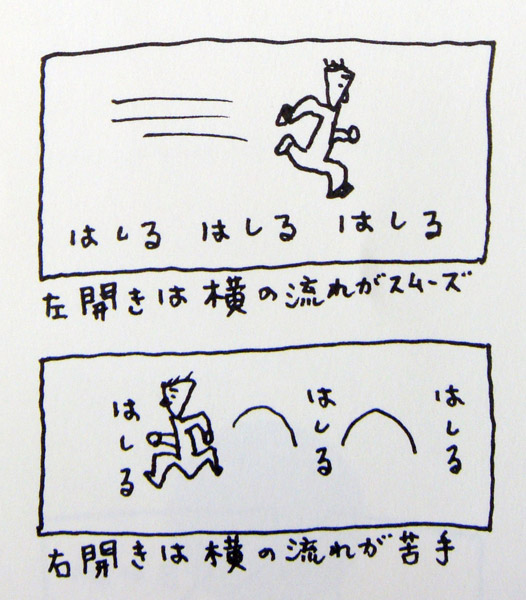 はしる はしる はしる
左開きは横の流れがスムーズ
はしる
はしる
はしる
右開きは横の流れが苦手